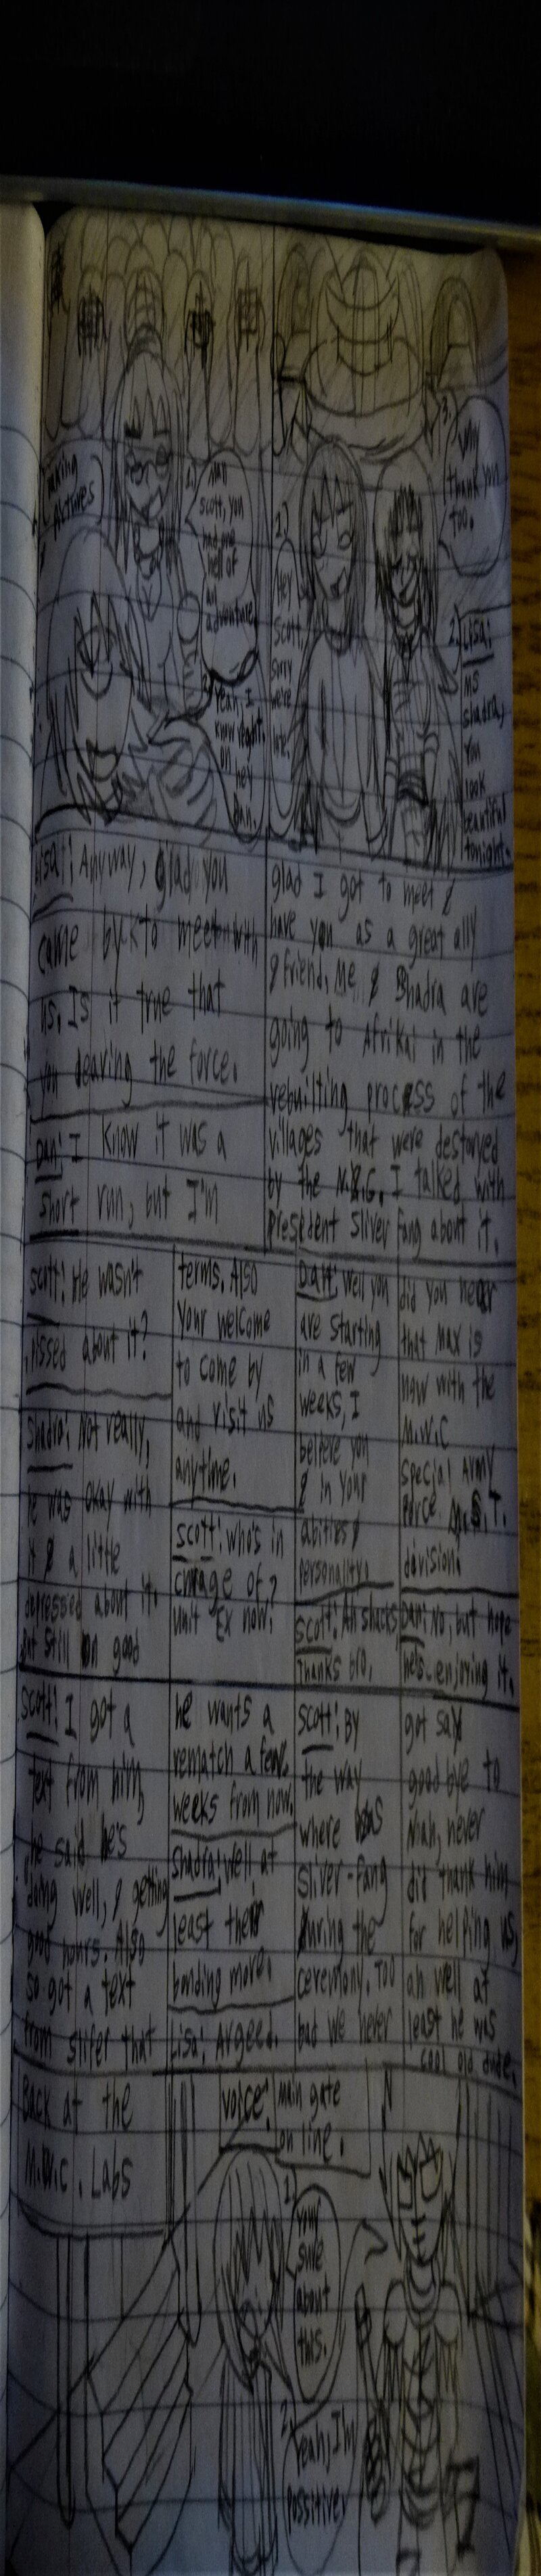 Taking
pictures
1.) Ah!
Scott, you
had one
hell of
an
adventure.
2. Yeah, I
know right.
oh
hey
Dan.
1.)
Hey
Scott,
sorry
we're
late.
2.) Lisa:
Ms
Shadra,
you
look
beautiful
tonight.
3.
Why
thank you
too.
Lisa: Anyway, glad you
came by to meet with
us. Is it true that
you leaving the force.
Dan: I know it was a
short run, but I'm
glad I got to meet &
have you as a great ally
& friend, Me & Shadra are
going to Afrikai in the
rebuilting process of the
villages that were destoryed
by the I talked with
Presedent Sliver Fang about it.
Scott: He wasn't
pissed about it?
Shadra: Not really,
he was okay with
it & a little
depressed about it.
But still on good
terms. Also
your welcome
to come by
and visit us
anytime.
Scott: who's in
charge of
unit Ex now?
Dan: Well you
are starting
in a few
weeks, I
believe you
& in your
abilities &
personality.
Scott: Ah shucks
thanks bro,
did you hear
that Max is
now with the
M.W.C
Special Army
Force
division.
Dan: No, but hope
he's enjoying it.
Scott: I got a
text from him,
he said he's
doing well, & getting
good hours. Also
so got a text
from slifer that
he wants a
rematch a few
weeks from now.
Shadra: well at
least their
bonding more.
Lisa: Argeed.
Scott: By
the way
where was
Sliver-Fang
during the
ceremony. Too
bad we never
got say
good bye to
Niah, never
did thank him
for helping us,
ah well at
least he was
cool old dude.
Back at the
M.W.C. Labs
Voice: main gate
on line.
1.)
Your
sure
about
this.
2.
Yeah, I'm
possitive